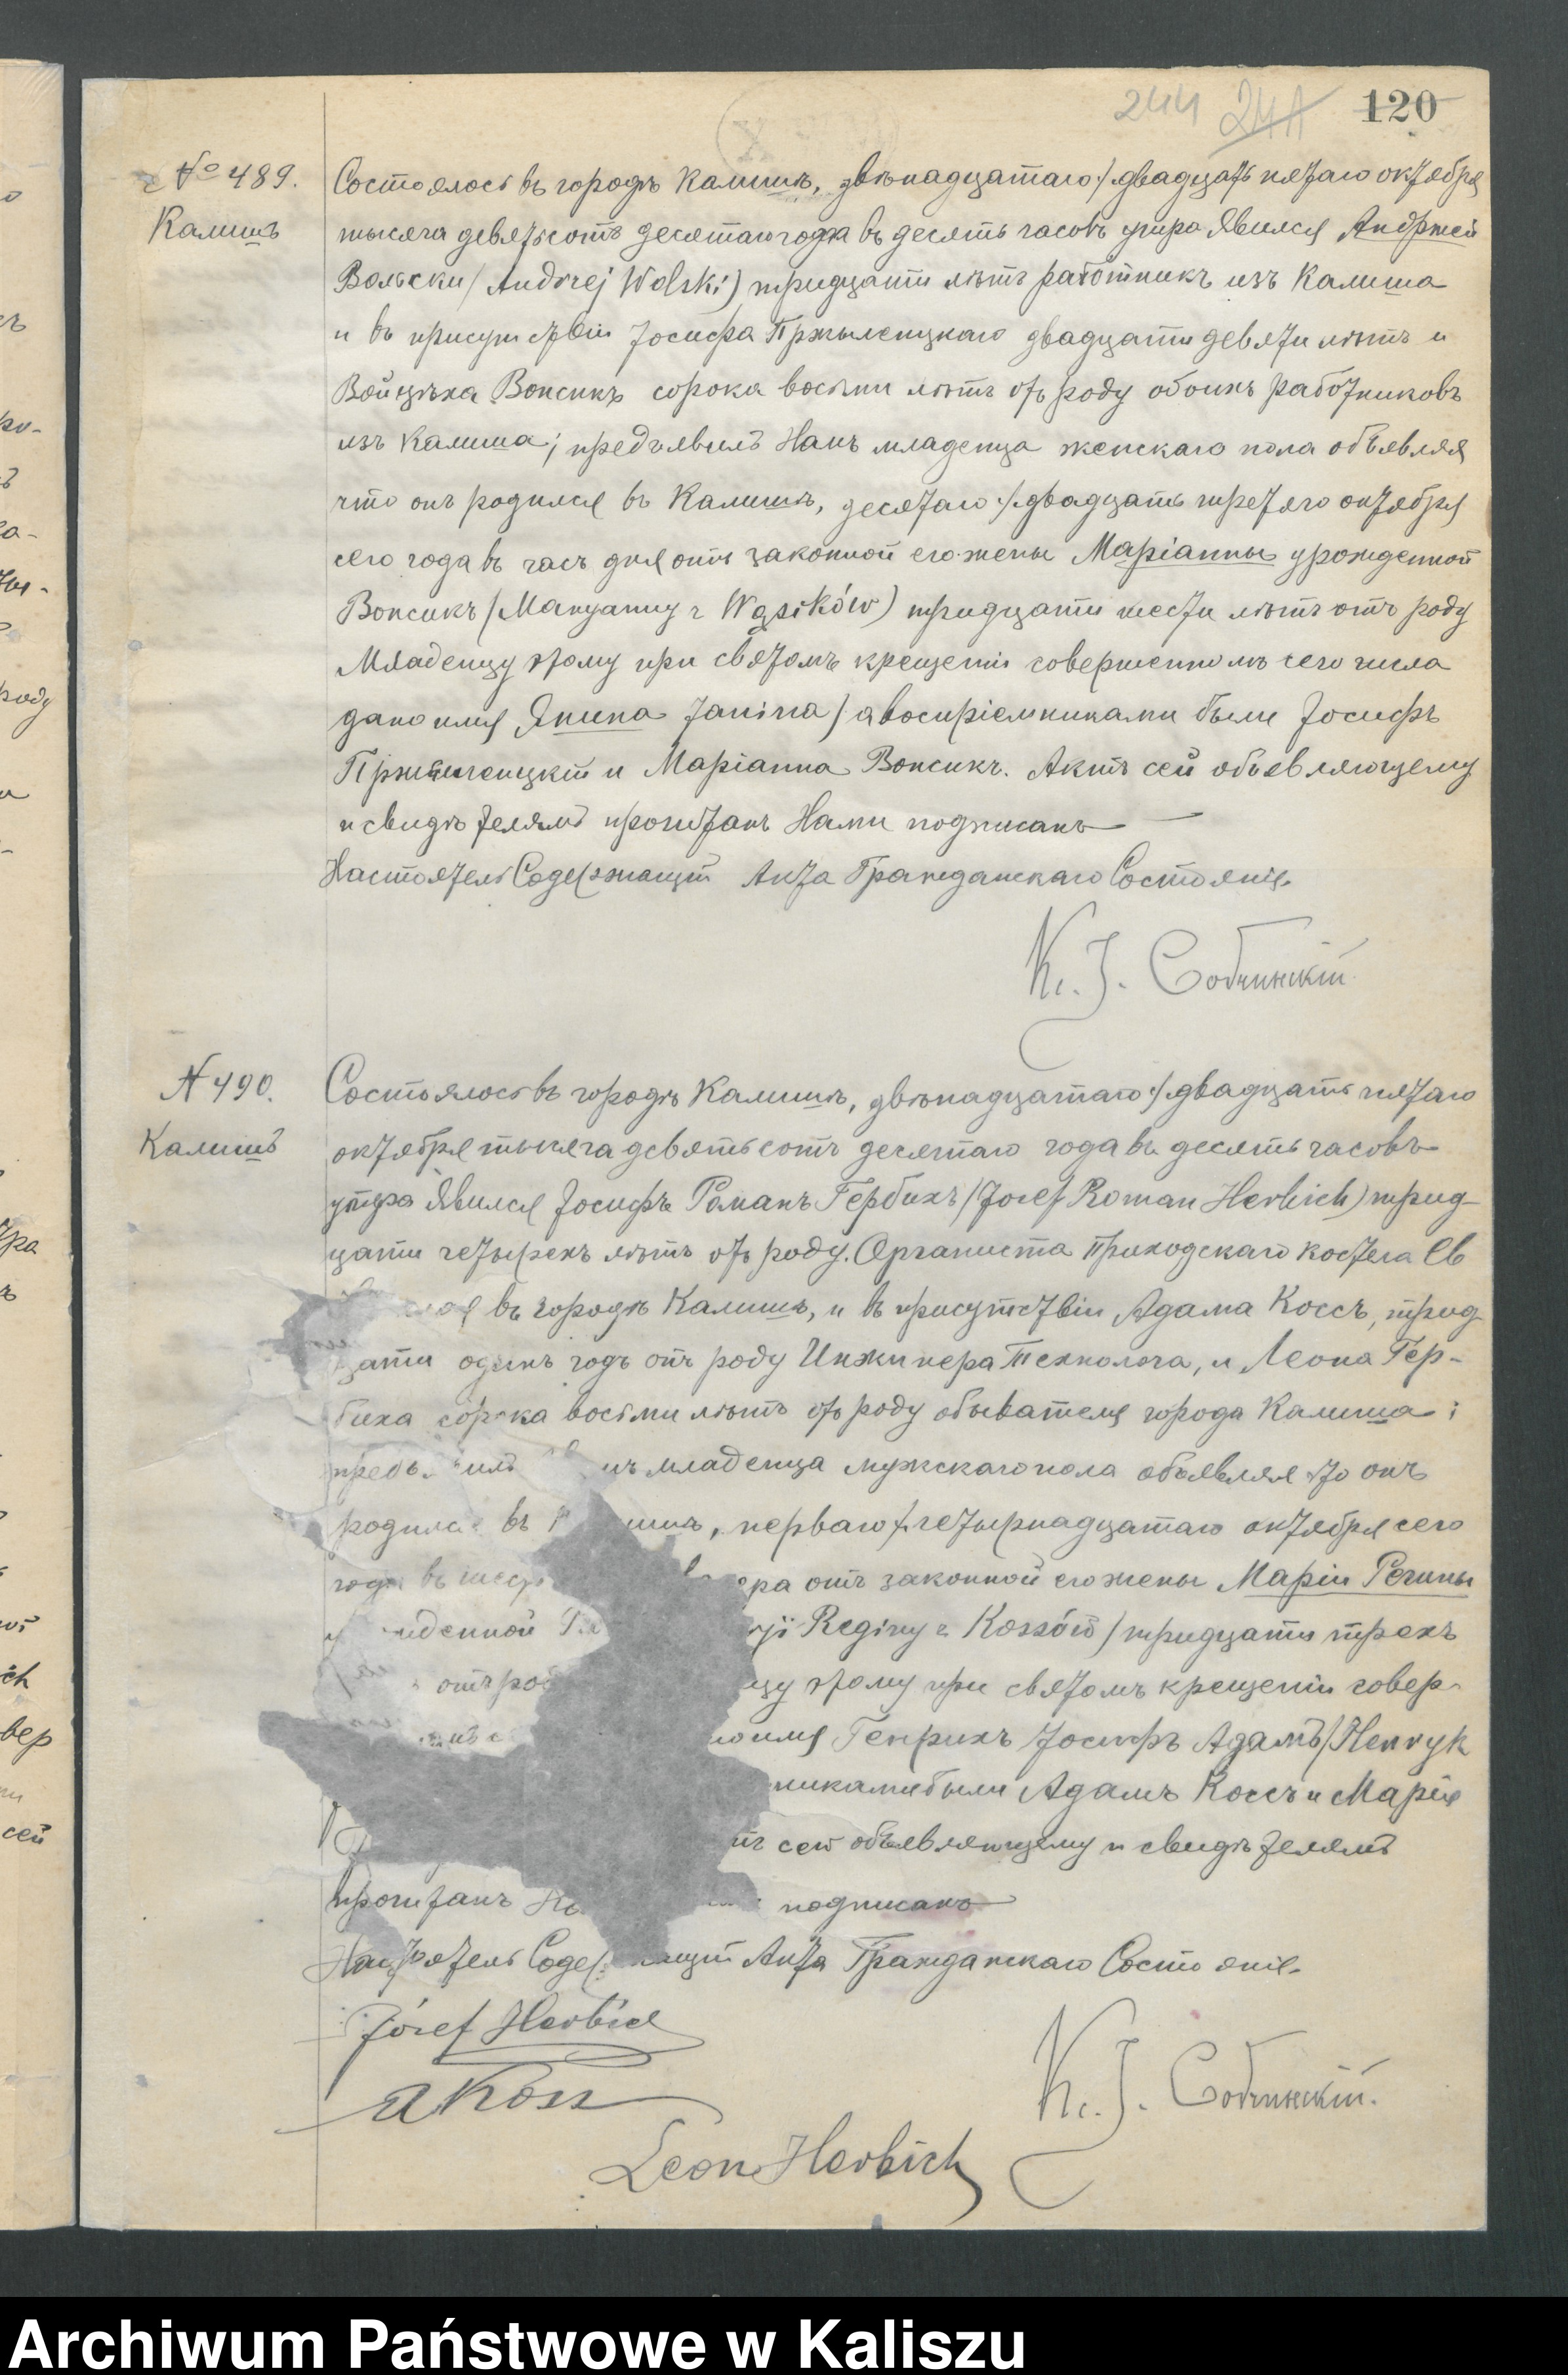 244 241 120
№ 489.
Калишъ
Состоялось въ городѣ Калишѣ, двѣнадцатаго /двадцать пятаго октября
тысяча девятьсотъ десятаго года въ десять часовъ утра Явился Андржей
Вольски /Andrzej Wolski) тридцати лѣтъ работникъ изъ Калиша
и въ присутствіи Іосифа Пржылепицкаго двадцати девяти лѣтъ и
Войцѣха Вонсикъ сорока восьми лѣтъ отъ роду обоихъ работниковъ
изъ Калиша; предъявилъ Намъ младенца женскаго пола объявляя
что онъ родился въ Калишѣ, десятаго /двадцать третяго октября
сего года въ часъ дня отъ законной его жены Маріанны урожденной
Вонсикъ /Maryanny z Wąsików) тридцати шести лѣтъ отъ роду
Младенцу этому при святомъ крещеніи совершенномъ сего числа
дано имя Янина Janina / а воспріемниками были Іосифъ
и Маріанна Вонсикъ. Актъ сей объявляющему
и свидѣтелямъ прочитанъ Нами подписанъ
Настоятель Содержащій Акта Гражданскаго Состоянія.
К. J. Собчинскій
N 490.
Калишъ
Состоялось въ городѣ Калишѣ, двѣнадцатаго /двадцать пятаго
октября тысяча девятьсотъ десятаго года въ десять часовъ
утра Явился Іосифъ Романъ Гербихъ /Josef Roman Herbich) трид-
цати четырехъ лѣтъ отъ роду. Органиста Приходскаго костела Св
въ городѣ Калишѣ, и въ присутствіи Адама Коссъ, трид
цати одинъ годъ отъ роду Инжинера Технолога, и Леона Гер-
биха сорока восьми лѣтъ отъ роду обывателя города Калиша;
младенца мужскаго пола объявляя что онъ
въ перваго /четырнадцатаго октября сего
въ отъ законной его жены Маріи Регины
Reginy z Kossów / тридцати трехъ
этому при святомъ крещеніи совер-
имя Генрихъ Іосифъ Адамъ /Henryk
были Адамъ Коссъ и Марія
сей объявляющему и свидѣтелямъ
прочитанъ подписанъ
Настоятель Акта Гражданскаго Состоянія.
Józef Herbich
A Koss
К. J. Собчинскій.
Leon Herbich
Archiwum Państwowe w Kaliszu